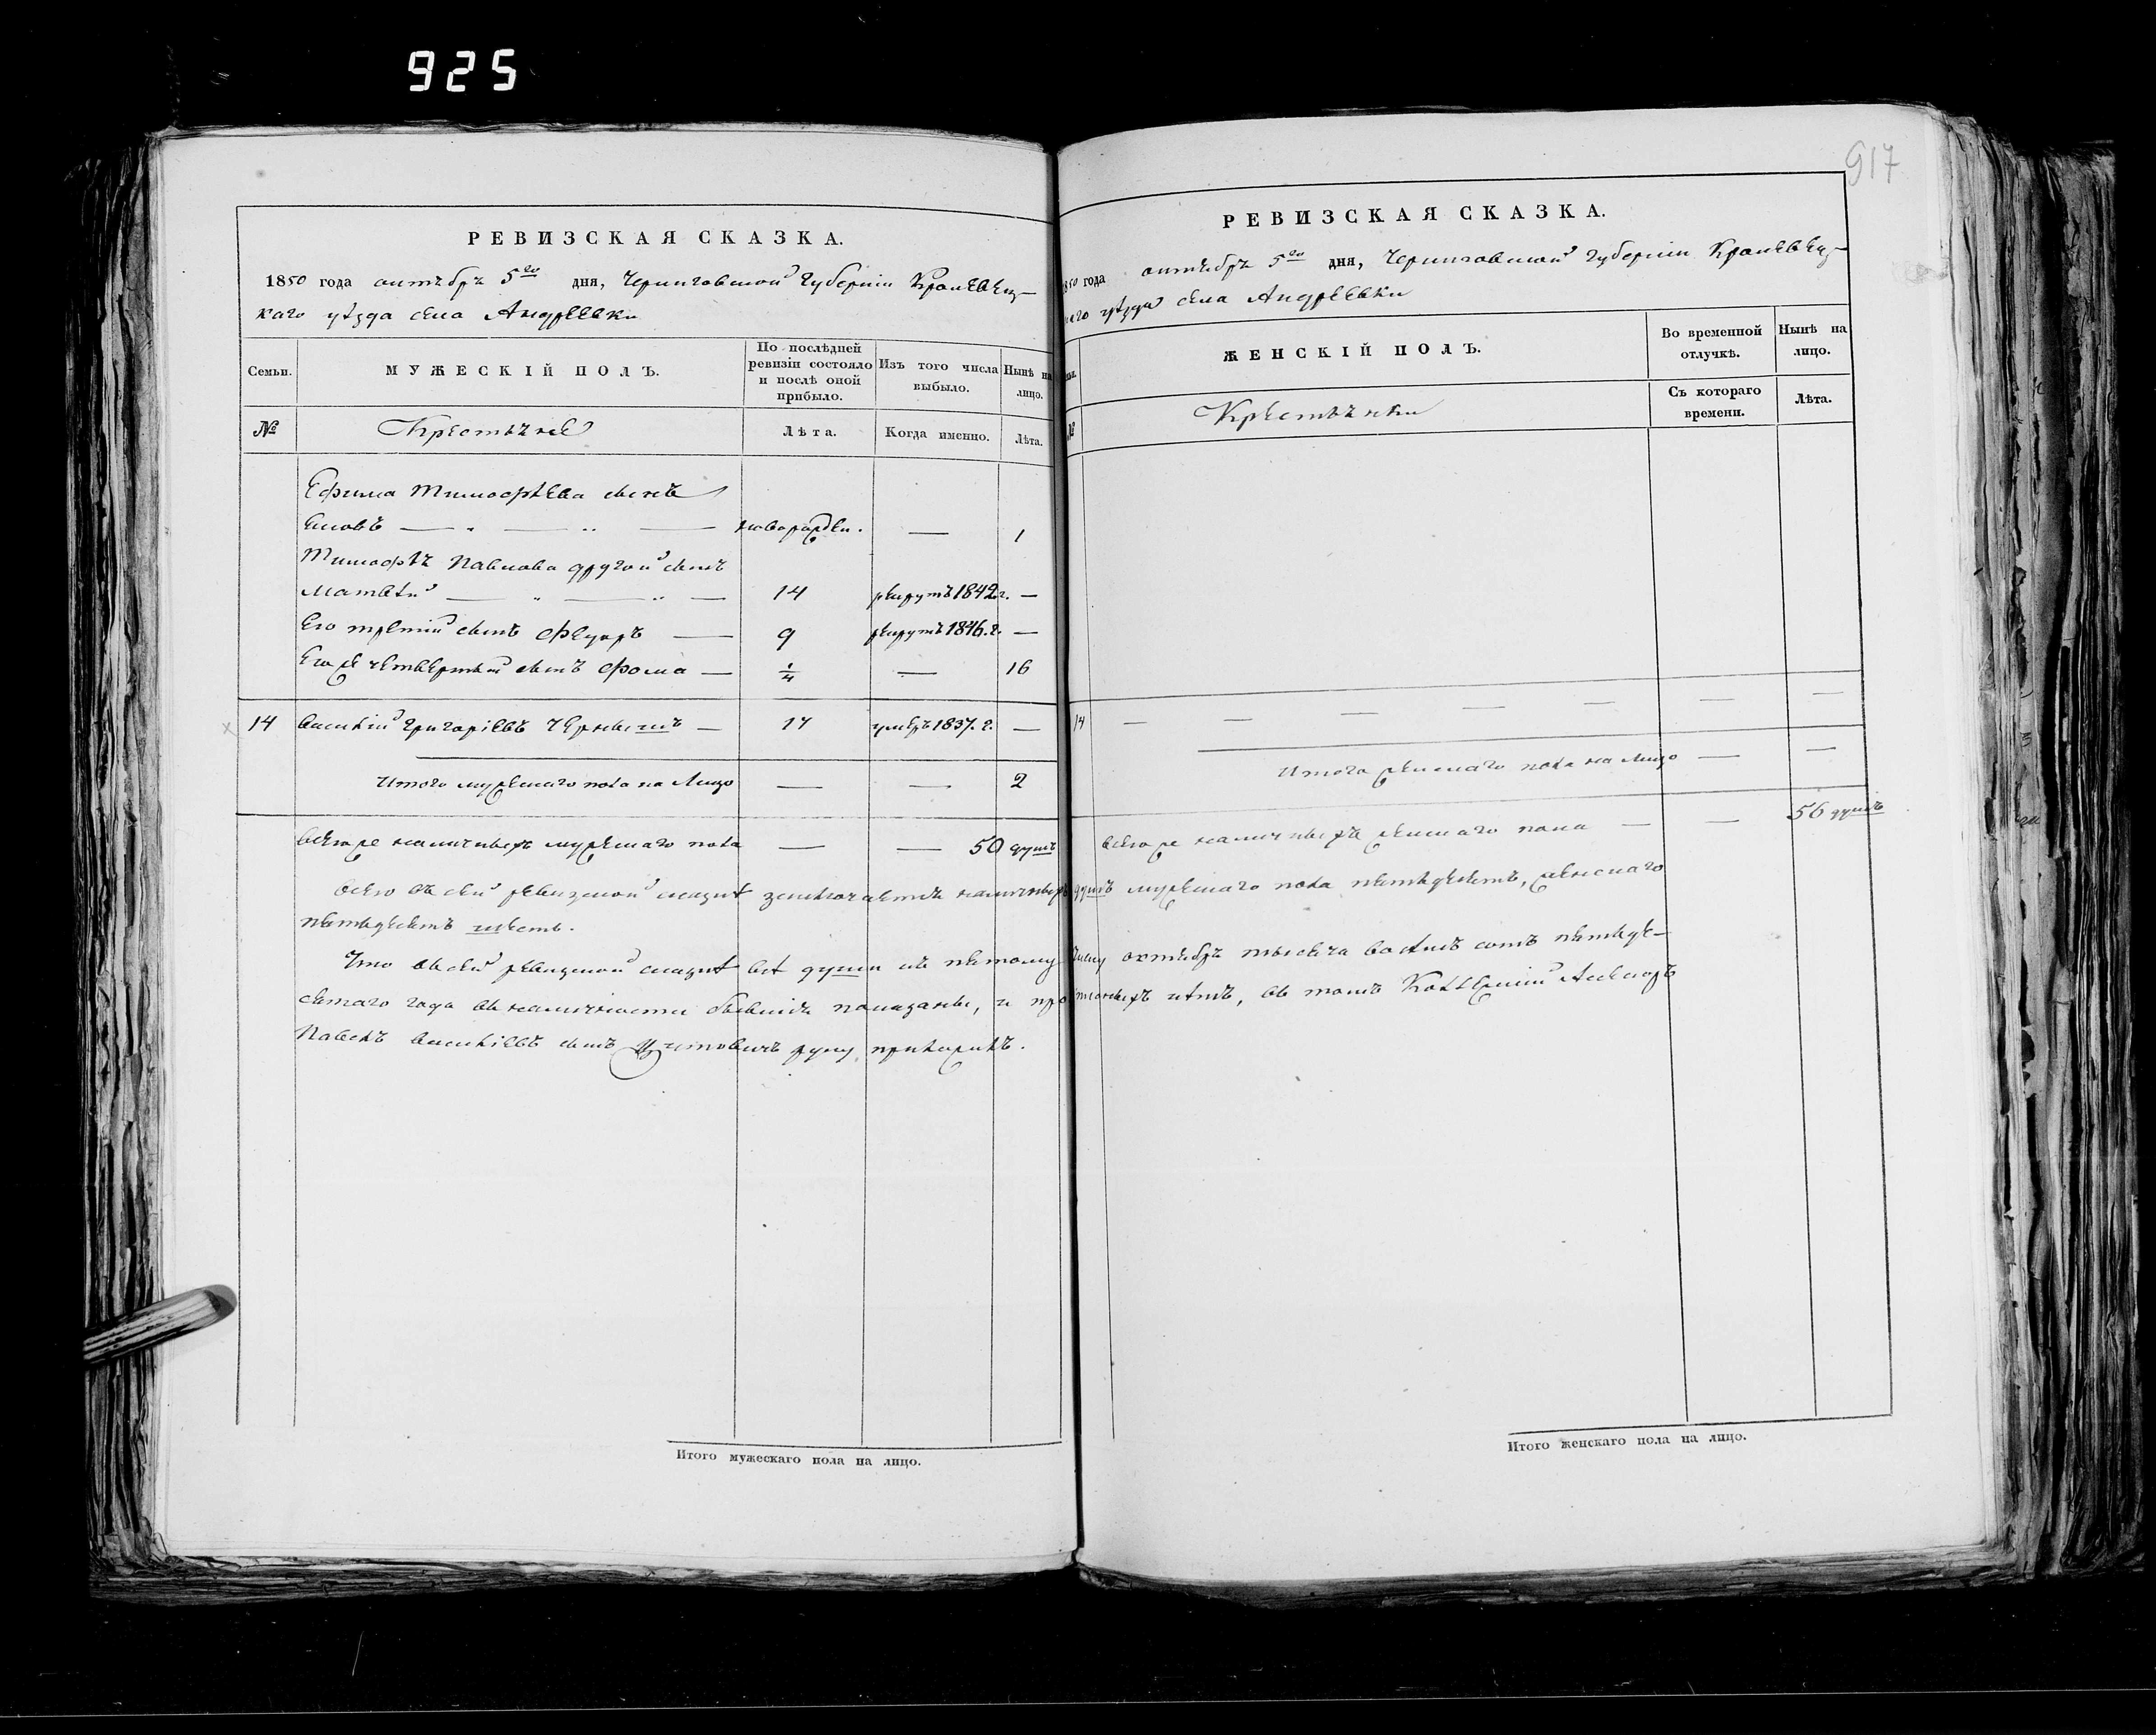 925
917
РЕВИЗСКАЯ СКАЗКА.
1850 года октября 5го дня, Черниговской Губерніи Кролевец-
каго уѣзда села Андреевки
Семьи.
МУЖЕСКІЙ ПОЛЪ.
По послѣдней ревизіи состояло и послѣ оной прибыло.
Изъ того числа выбыло.
Нынѣ на лицо.
№
Крестьяне
Лѣта.
Когда именно.
Лѣта.
Ефима Тимофѣева сынъ
новорожден. — 1
Тимофѣя Павлова другой сынъ
Матвѣй — 14 рекрутъ 1842 г. —
Его третій сынъ Федоръ — 9 рекрутъ 1846. г. —
Его же четвертый сынъ Фома — 1/4 — 16
14 Василій Григоріевъ — 17 умеръ 1837. г. —
Итого мужескаго пола на Лицо — — 2
Всего же наличныхъ мужескаго пола — — 50 душъ
РЕВИЗСКАЯ СКАЗКА.
1850 года октября 5го дня, Черниговской Губерніи Кролевец-
каго уѣзда села Андреевки
ЖЕНСКІЙ ПОЛЪ.
Во временной отлучкѣ.
Нынѣ на лицо.
№
Крестьянки
Съ котораго времени.
Лѣта.
14 — — — — — — —
Итого женскаго пола на лицо — —
Всего же наличныхъ женскаго пола — — 56 душъ
Всего въ сей ревизской сказкѣ заключается наличныхъ душъ мужескаго пола пятьдесятъ, женскаго
пятьдесятъ шесть.
Что въ сей ревизской сказкѣ всѣ души къ пятому числу октября тысяча восемь сотъ пятьде-
сятаго года въ наличности бывшія показаны, и прописныхъ нѣтъ, въ томъ Коллежскій Асесоръ
Павелъ Васильевъ сынъ руку приложилъ.
Итого мужескаго пола на лицо.
Итого женскаго пола на лицо.